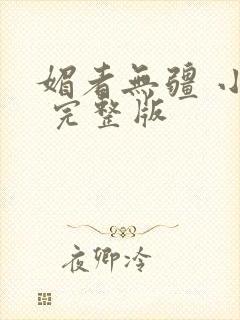 媚者無疆 小
完整版
夜卿冷